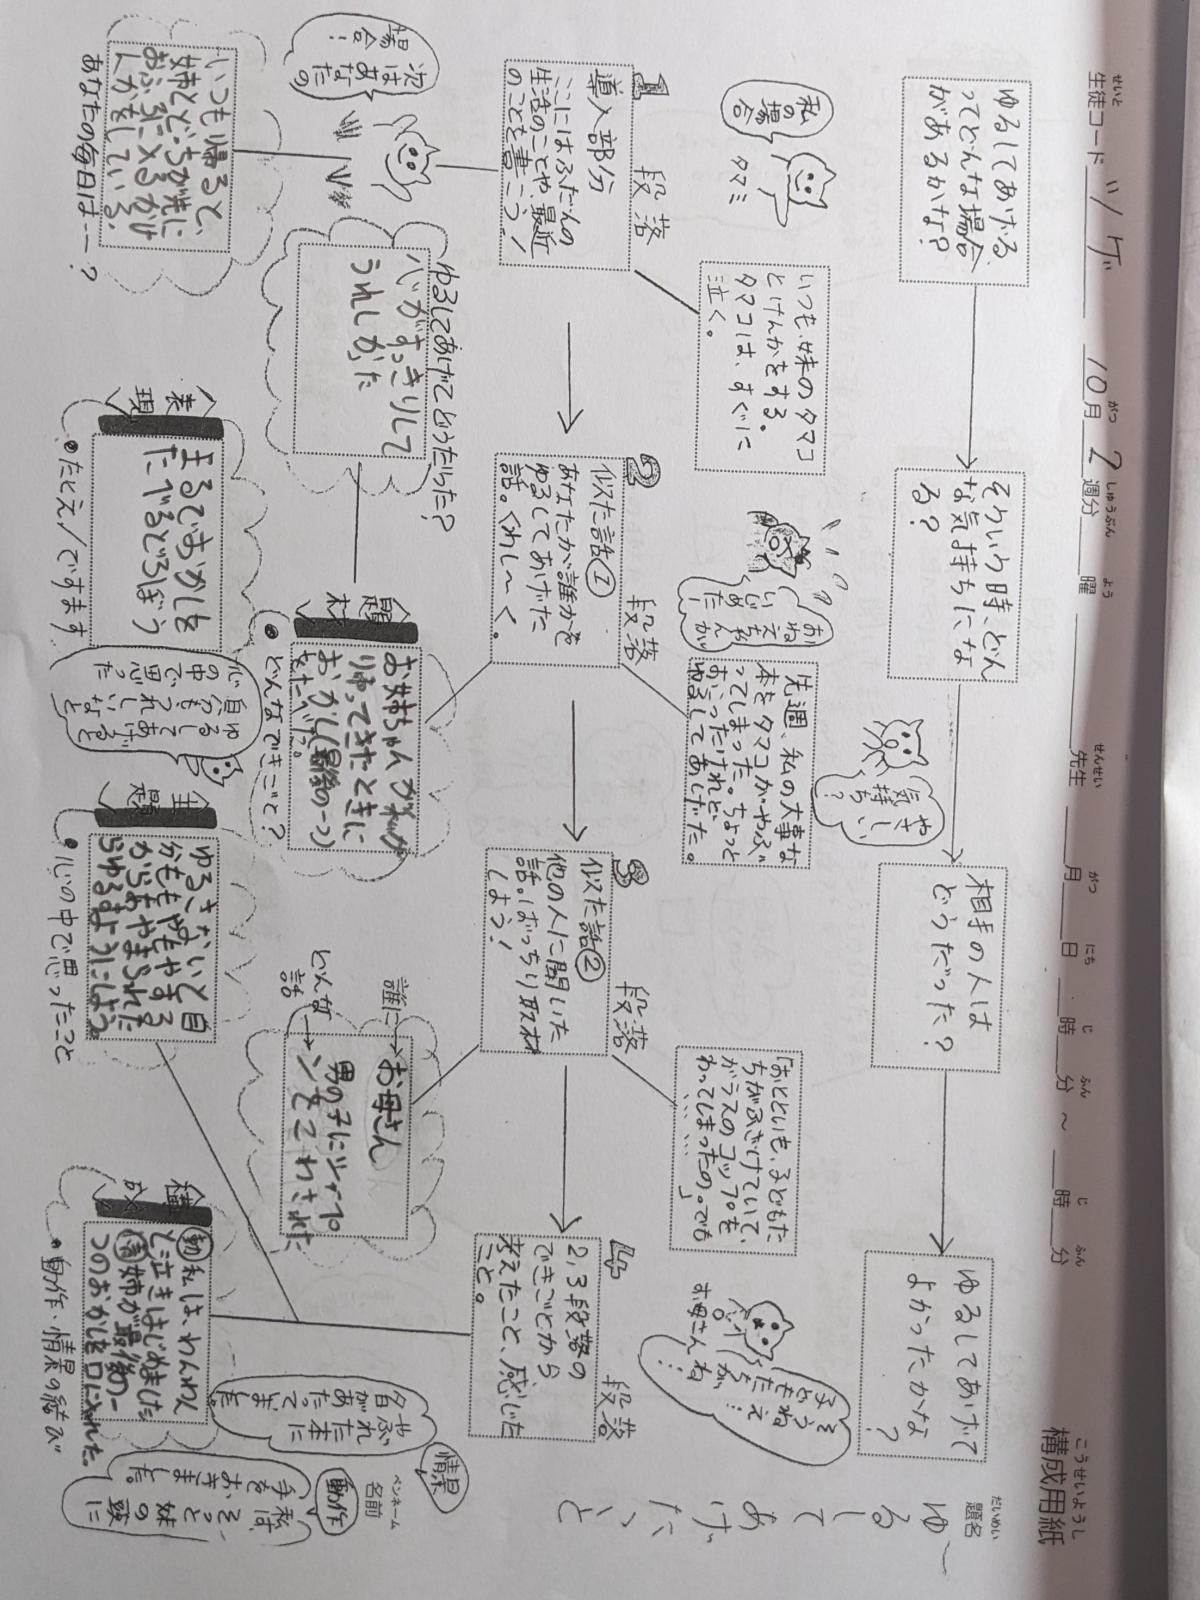 構成用紙
こうせいようし
生徒コード いノ ゲ 10月 2週分 曜 先生 月 日 時 分 ～ 時 分
せいと がつ しゅうぶん よう せんせい がつ にち じ ふん じ ふん
題名
だいめい
ゆるしてあげたいこと
ゆるしてあげる
ってどんな場合
があるかな?
そういう時、どん
な気持ちにな
る?
相手の人は
どうだった?
ゆるしてあげて
よかったかな
?
私の
場合
タマミ
いつも、妹のタマコ
とけんかをする。
タマコは、すぐに
泣く。
おねえちゃんが
いじめた!
先週、私の大事な
本をタマコがやぶ
ってしまった。ちょっと
おこったけれど、
ゆるしてあげた。
やさしい
気持ち?
「おとといも、子どもた
ちがふざけていて、
ガラスのコップを
わってしまったの。でも
………」
お母さんね
子どもたちが、
1 段落
導入部分
ここにはふだんの
生活のことや、最近
のことを書こう!
2 段落
似た話①
あなたが誰かを
ゆるしてあげた
話。くわし〜く。
3 段落
似た話②
他の人に聞いた
話。ばっちり取材
しよう!
4 段落
2,3段落の
できごとから
考えたこと、感じた
こと。
次はあなたの
場合!
いつも帰ると、
姉とどっちが先に
おふろに入るかけ
んかをしている。
あなたの毎日は…?
ゆるしてあげてどうだった?
心がすっきりして
うれしかった
表現
まるでおかしを
たべるどろぼう
・たとえ/ですます
題材
お姉ちゃんがわざ
おかし(最後の一つ)
をたべた。
・どんなできごと?
ゆるしてあげると
自分もうれしいなと
心の中で思った
主題
ゆるさないと自
分ももやもやする
からあやまられた
らゆるすようにしよう。
・心の中で思ったこと
誰に→
お母さん
どんな話→
男の子にシャープ
ンをこわされた
構成
動 私は、わんわん
と泣きはじめました
情 姉が最後の一
つのおかしを口に入れた。
・動作・情景の結び
情景
やぶれた本に
夕日があたっていました
動作
私は、そっと妹の頭に
手をおきました。
ペンネーム
名前